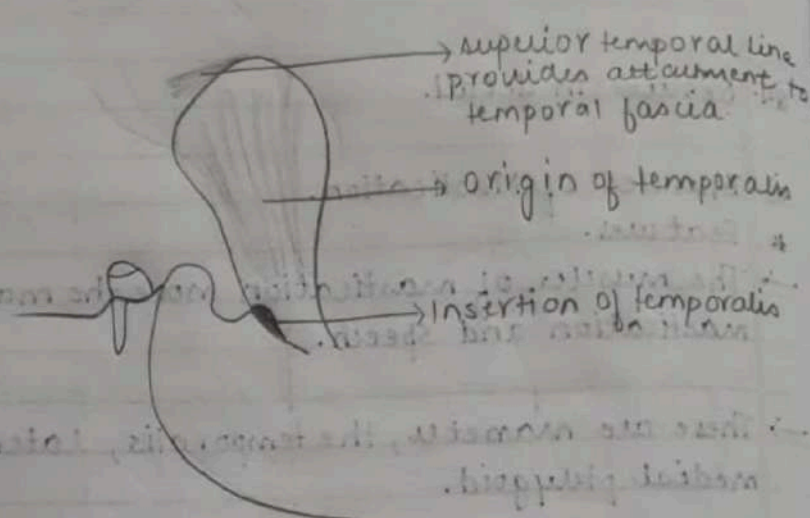 superior temporal line
provides attacument to
temporal fascia
origin of temporalis
Insertion of temporalis